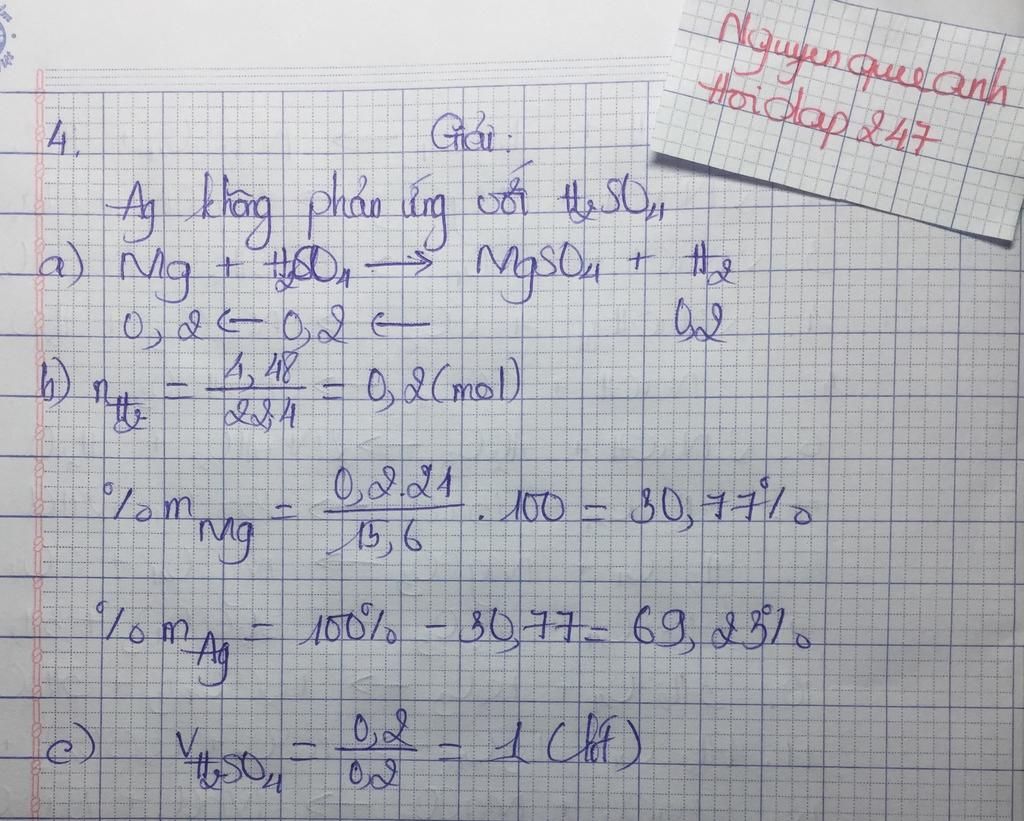 Nguyen que anh
Hoidap 247
4. Giải:
Ag không phản ứng với H₂SO₄
a) Mg + H₂SO₄ → MgSO₄ + H₂
0,2 ← 0,2 ← 0,2
b) n_H₂ = 4,48/22,4 = 0,2 (mol)
%m_Mg = 0,2.24/15,6 . 100 = 30,77%
%m_Ag = 100% - 30,77 = 69,23%
c) V_H₂SO₄ = 0,2/0,2 = 1 (lít)